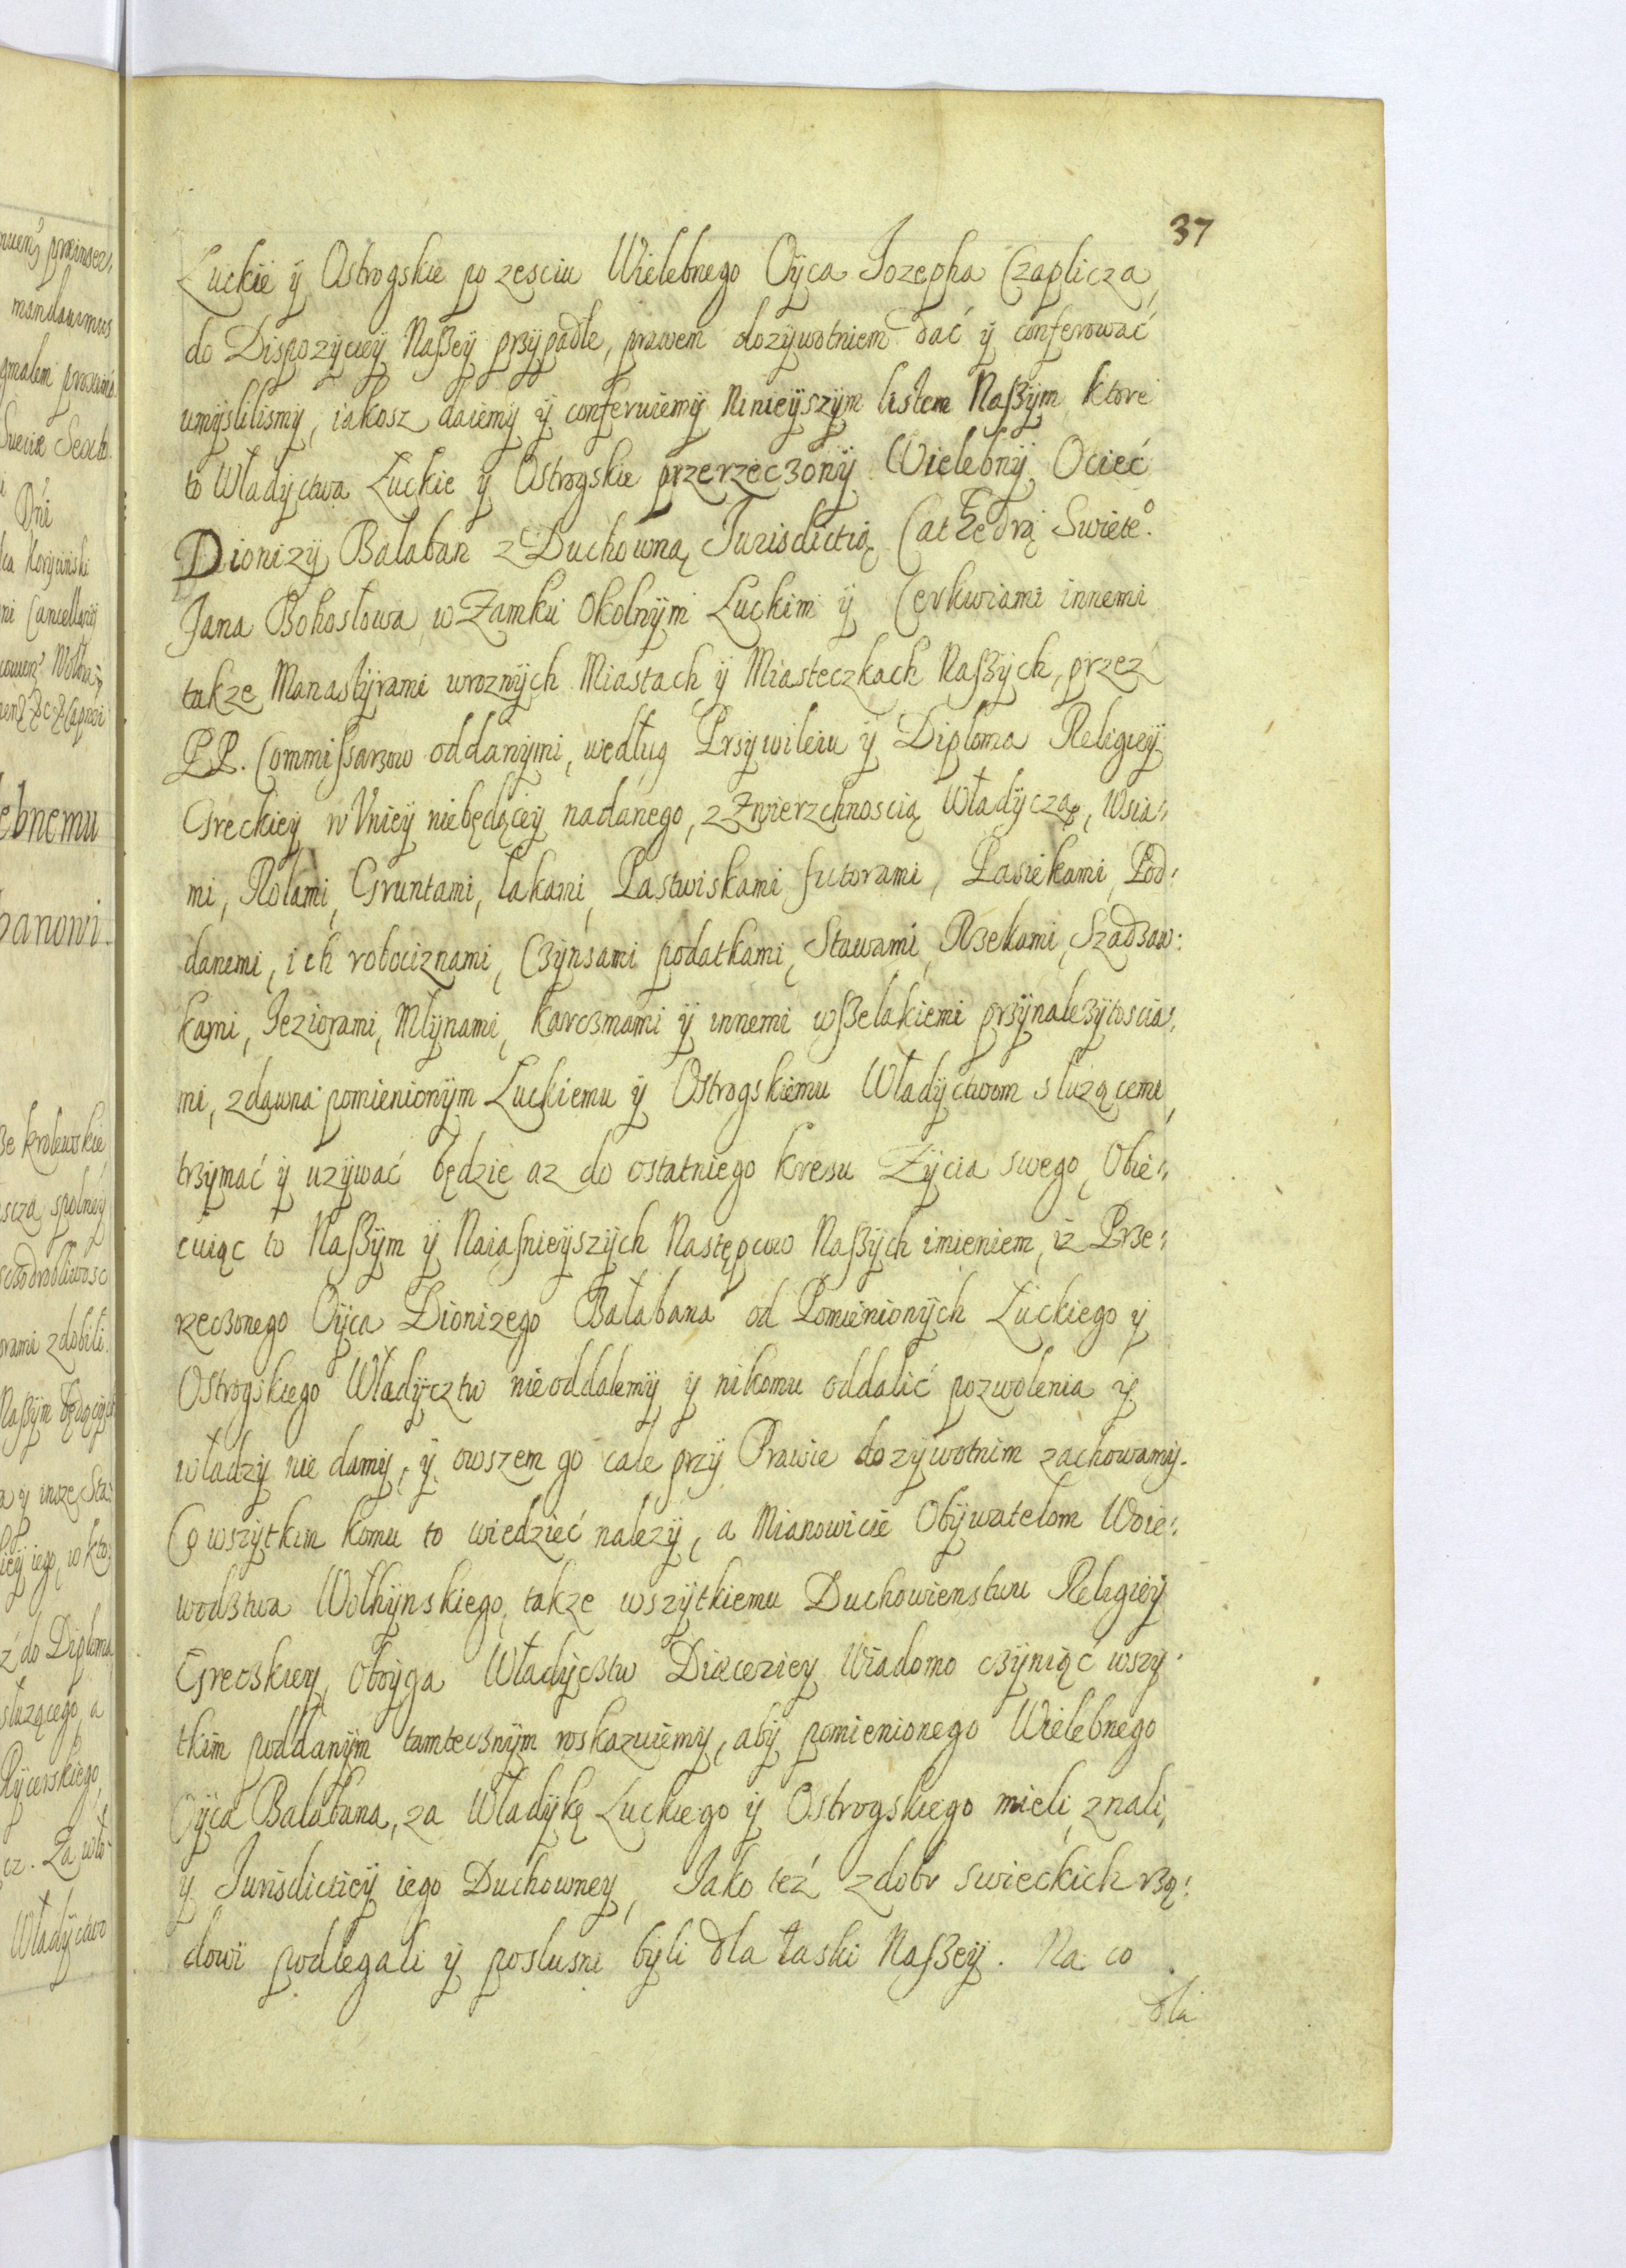 37
Luckie ÿ Ostrogskie po zesciu Wielebnego Oÿca Jozepha Czaplicza,
do Dispozÿcieÿ Naßeÿ przÿpadłe, prawem dozÿwotniem dać ÿ conferować
umÿslilismÿ, iakosz daiemÿ ÿ conferuiemÿ Ninieÿszÿm listem Naßÿm ktore
to Władÿctwa Luckie ÿ Ostrogskie przerzeczonÿ Wielebnÿ Ociec
Dionizÿ Bałaban z Duchowną Jurisdictią Cathedrą Swięte°.
Jana Bohosłowa w Zamku Okolnÿm Luckim ÿ Cerkwiami innemi
takze Manastÿrami wroznÿch Miastach ÿ Miasteczkach Naßÿch, przez
PP. Commißarzow oddanÿmi, według Przÿwileiu ÿ Diploma Religieÿ
Greckieÿ w Vnieÿ niebędąceÿ nadanego, z Zwierzchnoscią Władÿczą, Wsia⸗
mi, Rolami, Gruntami, łakami, Pastwiskami futorami, Pasiekami, Pod⸗
danemi, ich robociznami, Czÿnsami podatkami, Stawami, Rzekami, Szadzaw⸗
kami, Jeziorami, Młÿnami, karczmami ÿ innemi wßelakiemi przÿnalezÿtoscia⸗
mi, zdawna pomienionÿm Luckiemu ÿ Ostrogskiemu Władÿctwom sluzącemi,
trzÿmać ÿ uzÿwać będzie az do ostatniego kresu Zÿcia swego, Obie⸗
cuiąc to Naßÿm ÿ Naiasnieÿszÿch Następcow Naßÿch imieniem, iz Prze⸗
rzeczonego Oÿca Dionizego Bałabana od Pomienionÿch Luckiego ÿ
Ostrogskiego Władÿcztw nieoddalemÿ ÿ nikomu oddalić pozwolenia ÿ
władzÿ nie damÿ, ÿ owszem go cale przÿ Prawie dozÿwotnim zachowamÿ.
Co wszÿtkim komu to wiedzieć nalezÿ, a Mianowicie Obÿwatelom Woie⸗
wodztwa Wolhÿnskiego, takze wszÿtkiemu Duchowienstwu Religieÿ
Greczkieÿ, Oboÿga Władÿcztw Diæcezieÿ Wiadomo czÿniąc wszÿ⸗
tkim poddanÿm tamtecznÿm roskazuiemÿ, abÿ pomienionego Wielebnego
Oÿca Bałabana, za Władÿkę Luckiego ÿ Ostrogskiego mieli, znali,
ÿ Jurisdictieÿ iego Duchowneÿ, Jako też zdobr swieckich rzą⸗
dowi podlegali ÿ poslusni bÿli dla łaski Naßeÿ. Na co
dla